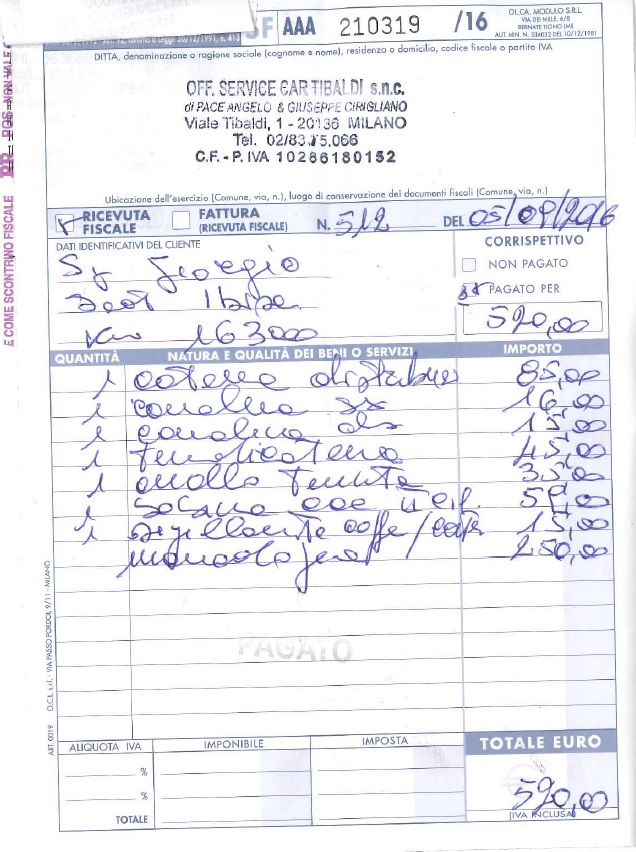 SF AAA 210319 /16
OLCA MODULO S.R.L.
VIA DEI MILLE, 6/8
BERNATE TICINO (MI)
AUT. MIN. N. 334032 DEL 10/12/1981
DITTA, denominazione o ragione sociale (cognome e nome), residenza o domicilio, codice fiscale o partita IVA
OFF. SERVICE CAR TIBALDI s.n.c.
di PACE ANGELO & GIUSEPPE CIRIGLIANO
Viale Tibaldi, 1 - 20136 MILANO
Tel. 02/83.75.066
C.F. - P.IVA 10286180152
Ubicazione dell'esercizio (Comune, via, n.), luogo di conservazione dei documenti fiscali (Comune, via, n.)
RICEVUTA FISCALE
FATTURA (RICEVUTA FISCALE)
N. 512 DEL 05/09/2016
DATI IDENTIFICATIVI DEL CLIENTE
Sg Giorgio
Seat Ibiza
Km 163000
CORRISPETTIVO
NON PAGATO
PAGATO PER
590,00
QUANTITÀ NATURA E QUALITÀ DEI BENI O SERVIZI IMPORTO
1 catena distribuz 85,00
1 canalina sx 16,00
1 canalina dx 15,00
1 tendicatena 45,00
1 anello tenuta 35,00
1 15,00
manodopera 250,00
PAGATO
ALIQUOTA IVA IMPONIBILE IMPOSTA TOTALE EURO
%
%
TOTALE
590,00
(IVA INCLUSA)
ART. 0019 O.C.L. s.r.l. - VIA PASSO PORDOI, 9/11 - MILANO
E COME SCONTRINO FISCALE